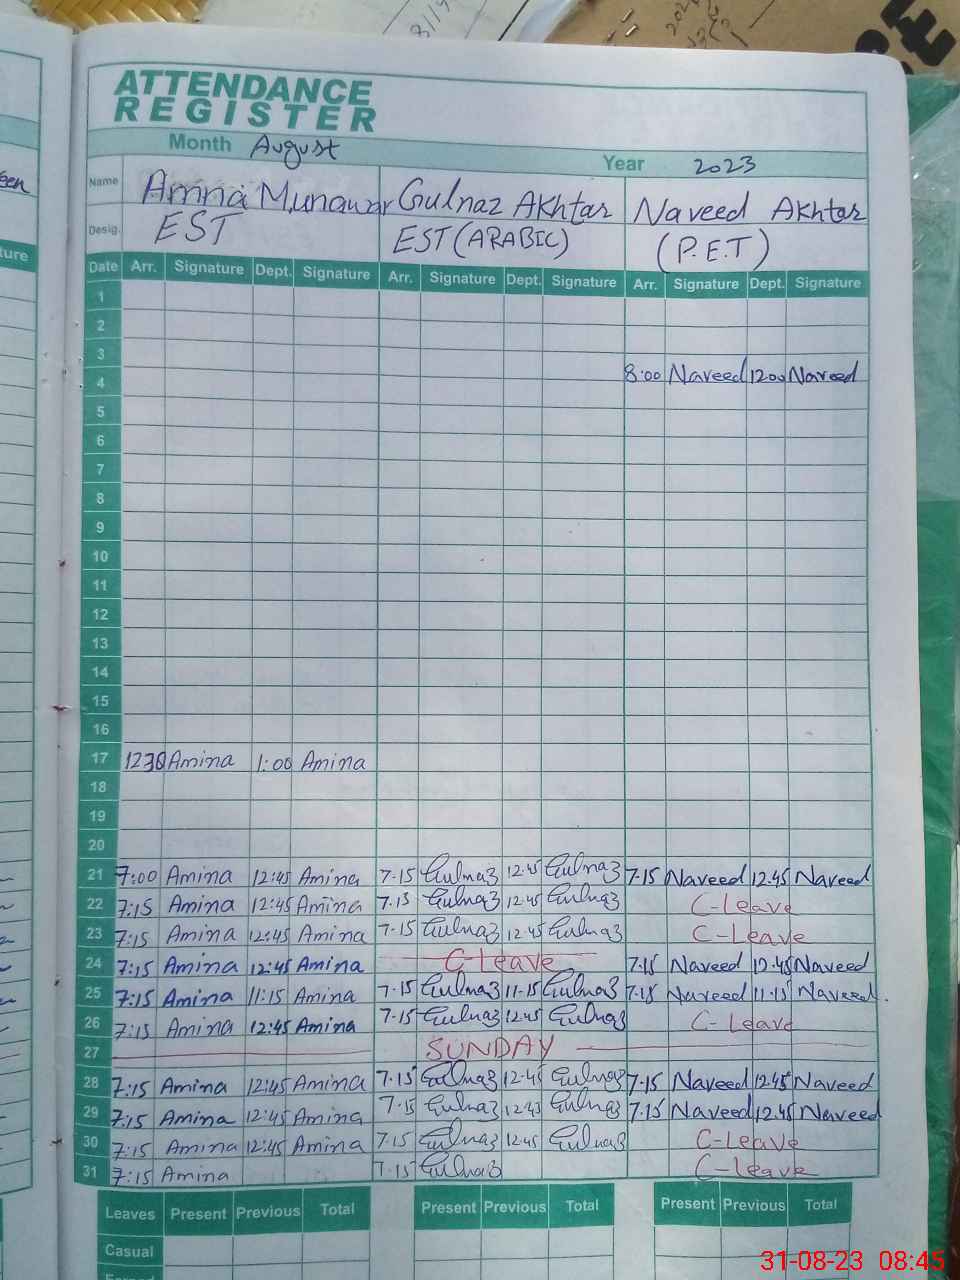 ATTENDANCE
REGISTER
Month August Year 2023
Name Amna Munawar Gulnaz Akhtar Naveed Akhtar
Desig. EST EST (ARABIC) (P.E.T)
Date Arr. Signature Dept. Signature Arr. Signature Dept. Signature Arr. Signature Dept. Signature
1
2
3
4 8:00 Naveed 12:00 Naveed
5
6
7
8
9
10
11
12
13
14
15
16
17 1230 Amina 1:00 Amina
18
19
20
21 7:00 Amina 12:45 Amina 7-15 Gulnaz 12-45 Gulnaz 7.15 Naveed 12.45 Naveed
22 7:15 Amina 12:45 Amina 7-15 Gulnaz 12-45 Gulnaz C-Leave
23 7:15 Amina 12:45 Amina 7-15 Gulnaz 12-45 Gulnaz C-Leave
24 7:15 Amina 12:45 Amina C-Leave 7.15 Naveed 12.45 Naveed
25 7:15 Amina 11:15 Amina 7-15 Gulnaz 11-15 Gulnaz 7.15 Naveed 11-15 Naveed
26 7:15 Amina 12:45 Amina 7-15 Gulnaz 12-45 Gulnaz C-Leave
27 SUNDAY
28 7:15 Amina 12:45 Amina 7-15 Gulnaz 12-45 Gulnaz 7.15 Naveed 12.45 Naveed
29 7:15 Amina 12:45 Amina 7-15 Gulnaz 12-45 Gulnaz 7.15 Naveed 12.45 Naveed
30 7:15 Amina 12:45 Amina 7-15 Gulnaz 12-45 Gulnaz C-Leave
31 7:15 Amina 7-15 Gulnaz C-Leave
Leaves Present Previous Total Present Previous Total Present Previous Total
Casual
31-08-23 08:45